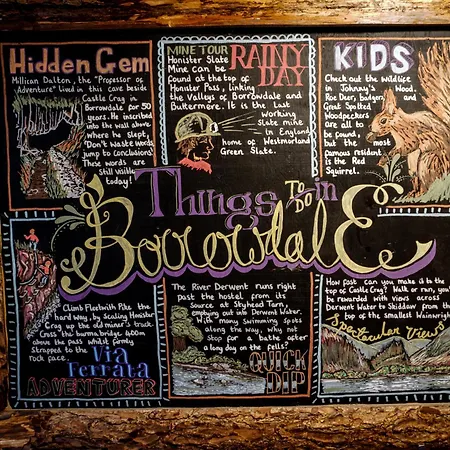 Hidden Gem
Millican Dalton, the "Professor of
Adventure" lived in this cave beside
Castle Crag in
Borrowdale for 50
years. He inscribed
into the wall above
where he slept,
"Don't waste words
jump to Conclusions"
These words are
still visible
today!
MINE TOUR RAINY
DAY
Honister Slate
Mine can be
found at the top of
Honister Pass, linking
the Valleys of Borrowdale and
Buttermere. It is the last
working
Slate mine
in England
home of Westmorland
Green Slate.
KIDS
Check out the wildlife
in Johnny's Wood.
Roe Deer, badgers and
Great Spotted
Woodpeckers
are all to
be found,
but the
most
famous resident
is the Red
Squirrel.
Things TO DO in
BorrowdalE
Climb Fleetwith Pike the
hard way, by scaling Honister
Crag up the old miner's track.
Cross the burma bridge,
above the pass whilst firmly
Strapped to the
rock face.
Via
Ferrata
ADVENTURER
The River Derwent runs right
past the hostel from its
Source at Styhead Tarn,
emptying out into Derwent Water.
With many Swimming Spots
along the way, why not
Stop for a bathe after
a long day on the fells?
QUICK
DIP
How fast can you make it to the
top of Castle Crag? Walk or run, you'll
be rewarded with views across
Derwent Water to Skiddaw from the
top of the smallest Wainwright
Spectacular Views